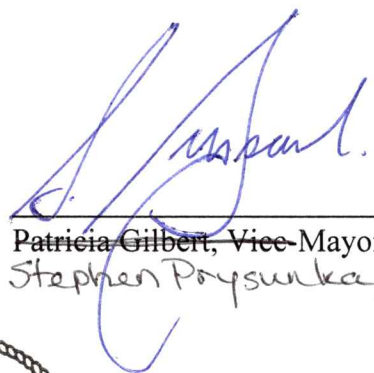 Patricia Gilbert, Vice-Mayo
Stephen Prysunka